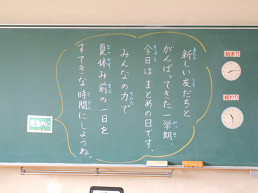 新しい友だちと
がんばってきた一学期、
今日はまとめの日です。
みんなの力で
夏休み前の一日を
すてきな時間にしようね。